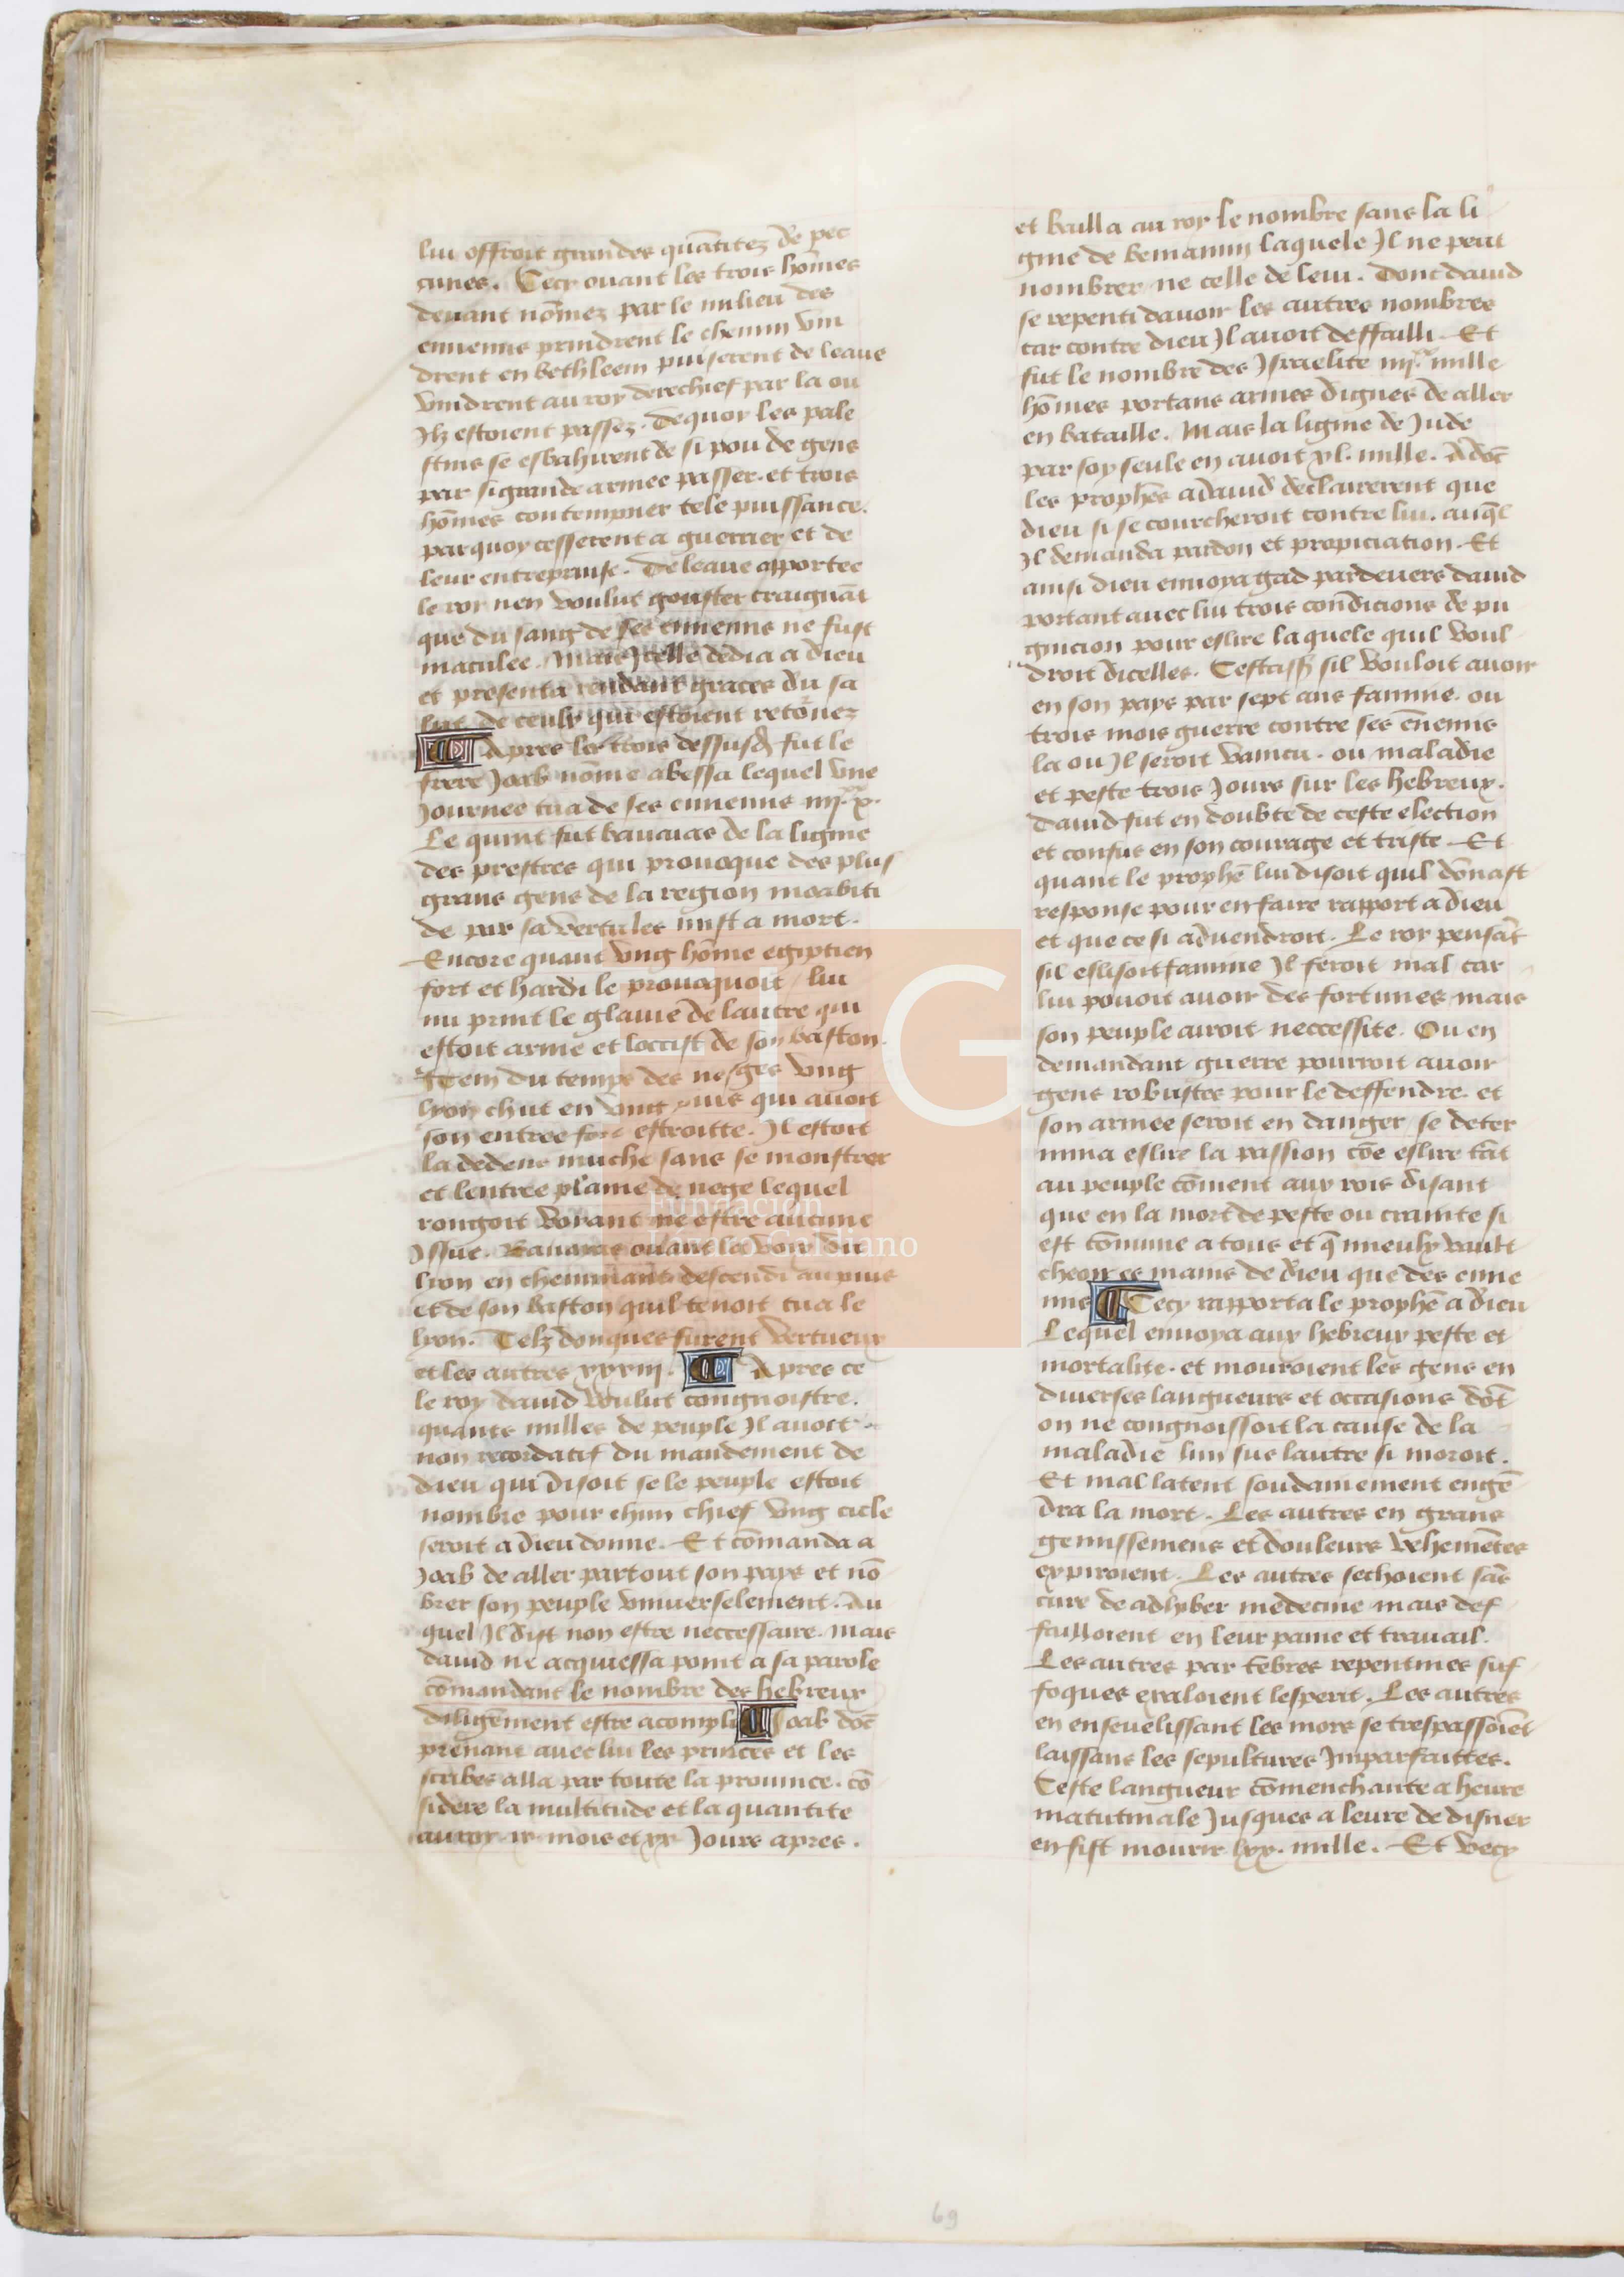 lui offroit grandes quātitez de pec
cunes. Cecy oyant les trois hōmes
deuant nōmez par le milieu des
ennemis prindrent le chemin vin
drent en bethleem puiserent de leaue
vindrent au roy derechief par la ou
Ilz estoient passez. Dequoy les pale
stins se esbahirent de si pou de gens
par si grande armee passer. et trois
hōmes contempner tele puissance.
parquoy cesserent a guerrier et de
leur entreprinse. De leaue apportee
le roy nen voulut gouster craignāt
que du sang de ses ennemis ne fust
maculee. Mais Icelle dedia a dieu
et presenta rendant graces du sa
lut de ceulx qui estoient retōnez
Apres les trois dessusd fut le
frere Joab nōme abessa lequel vne
Journee tua de ses ennemis iiii.xx.
Le quint fut banaias de la lignie
des prestres qui prouoque des plus
grans gens de la region moabiti
de par sa vertu les mist a mort.
Encore quant vng hōme egiptien
fort et hardi le prouoquoit lui
nu print le glaiue de lautre qui
estoit arme et loccist de son baston.
Item du temps des neges vng
lyon chut en vng puis qui auoit
son entree fort estroitte. Il estoit
la dedens muche sans se monstrer
et lentree plaine de nege lequel
rongoit voyant ne estre aucune
Issue. Banayas oyant la voix du
lion en cheminant descendi au puis
et de son baston quil tenoit tua le
lyon. Telz donques furent vertueux
et les autres xxxiii. Apres ce
le roy dauid voulut congnoistre.
quants milles de peuple Il auoit.
non recordatif du mandement de
dieu qui disoit se le peuple estoit
nombre pour chūn chief vng cicle
seroit a dieu donne. Et cōmanda a
Joab de aller partout son pays et nō
brer son peuple vniuerselement. Au
quel Il dist non estre neccessaire. mais
dauid ne acquiessa point a sa parole
cōmandant le nombre des hebreux
diligēment estre acompli Joab dōc
prenant auec lui les princes et les
scribes alla par toute la prouince. cō
sidere la multitude et la quantite
au roy ix mois et xx Jours apres.
et bailla au roy le nombre sans la li
gnie de beniamin laquele Il ne peut
nombrer ne celle de leui. Donc dauid
se repenti dauoir les autres nombres
car contre dieu Il auoit deffailli. Et
fut le nombre des Israelite iiii.c mille
hōmes portans armes dignes de aller
en bataille. Mais la lignie de Jude
par soy seule en auoit xl. mille. Adōc
les prophēs a dauid declairerent que
dieu si se courcheroit contre lui. auql̄
Il demanda pardon et propiciation. Et
ainsi dieu enuoya gad pardeuers dauid
portant auec lui trois condicions de pu
gnicion pour eslire laquele quil voul
droit dicelles. Cestass̄ sil vouloit auoir
en son pays par sept ans famine. ou
trois mois guerre contre ses ēnemis
la ou Il seroit vaincu. ou maladie
et peste trois Jours sur les hebreux.
dauid fut en doubte de ceste election
et confus en son courage et triste. Et
quant le prophē lui disoit quil dōnast
response pour en faire rapport a dieu
et que ce si aduendroit. Le roy pensāt
sil eslisoit famine Il feroit mal car
lui pouoit auoir des fortunes mais
son peuple auroit neccessite. Ou en
demandant guerre pourroit auoir
gens robustes pour le deffendre. et
son armee seroit en danger se deter
mina eslire la passion cōe eslire tāt
au peuple cōment aux rois disant
que en la mort de peste ou crainte si
est cōmune a tous et q̄ mieulx vault
cheoir es mains de dieu que des enne
mis Cecy rapporta le prophē a dieu
Lequel enuoya aux hebreux peste et
mortalite. et mouroient les gens en
diuerses langueurs et occasions dōt
on ne congnoissoit la cause de la
maladie lun sus lautre si moroit.
Et mal latent soudainement engē
dra la mort. Les autres en grans
gemissemens et douleurs vehemētes
expiroient. Les autres sechoient sās
cure de adhyber medecine mais def
failloient en leur paine et trauail.
Les autres par tēbres repentines suf
foques exaloient lesperit. Les autres
en enseuelissant les mors se trespassoiēt
laissans les sepultures Imparfaittes.
Ceste langueur cōmenchante a heure
matutinale Jusques a leure de disner
en fist mourir lxx. mille. Et vecy
FLG
Fundación
Lázaro Galdiano
69